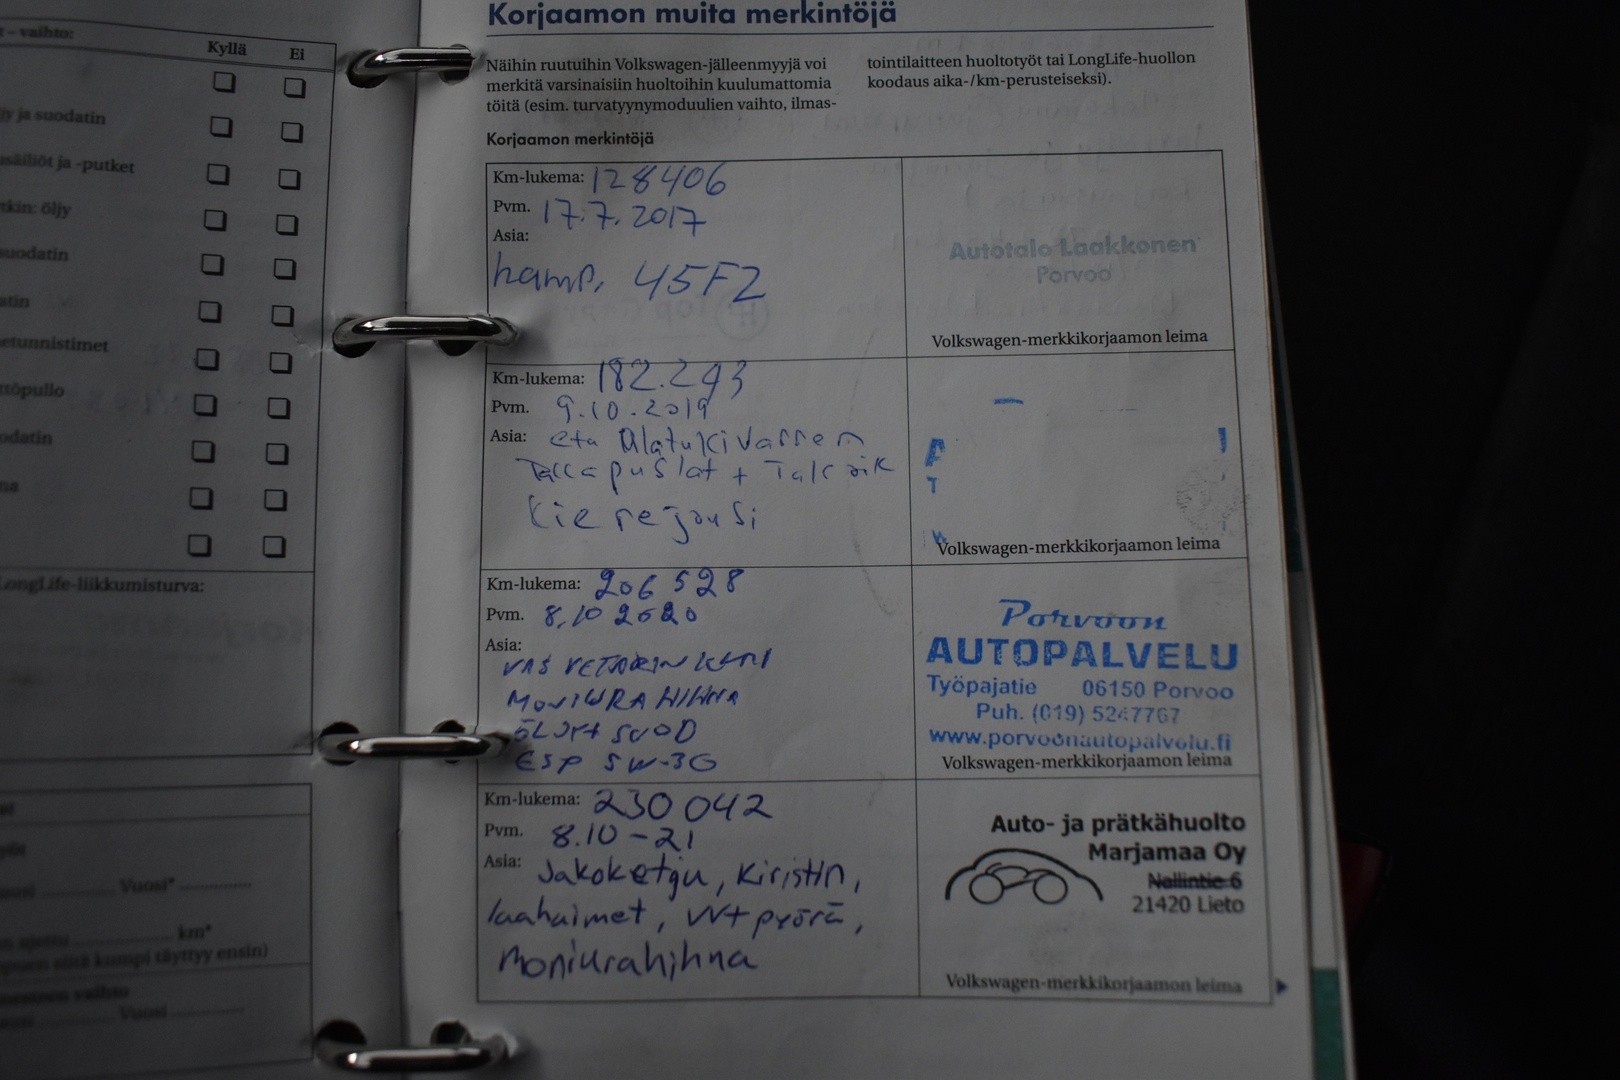 t – vaihto:
Kyllä Ei
y ja suodatin
usäiliöt ja -putket
tkin: öljy
suodatin
atin
etunnistimet
töpullo
odatin
na
LongLife-liikkumisturva:
Vuosi*
km*
täyttyy ensin)
Vuosi
Korjaamon muita merkintöjä
Näihin ruutuihin Volkswagen-jälleenmyyjä voi
merkitä varsinaisiin huoltoihin kuulumattomia
töitä (esim. turvatyynymoduulien vaihto, ilmas-
tointilaitteen huoltotyöt tai LongLife-huollon
koodaus aika-/km-perusteiseksi).
Korjaamon merkintöjä
Km-lukema: 128406
Pvm. 17.7.2017
Asia:
hamp. 45F2
Autotalo Laakkonen
Porvoo
Volkswagen-merkkikorjaamon leima
Km-lukema: 182.293
Pvm. 9.10.2019
Asia: eta alatukivarren
Takapuslat + Talc oik
Kierrejousi
Volkswagen-merkkikorjaamon leima
Km-lukema: 206 528
Pvm. 8.10 2020
Asia:
VAS VETARIN KUMI
MONIURA HIHNA
ÖLJY+ SUOD
ESP 5W-30
Porvoon
AUTOPALVELU
Työpajatie 06150 Porvoo
Puh. (019) 5247767
www.porvoonautopalvelu.fi
Volkswagen-merkkikorjaamon leima
Km-lukema: 230 042
Pvm. 8.10-21
Asia: Jakoketju, Kiristin,
laahaimet, VVT pyörä,
Moniurahihna
Auto- ja prätkähuolto
Marjamaa Oy
Nallintie 6
21420 Lieto
Volkswagen-merkkikorjaamon leima